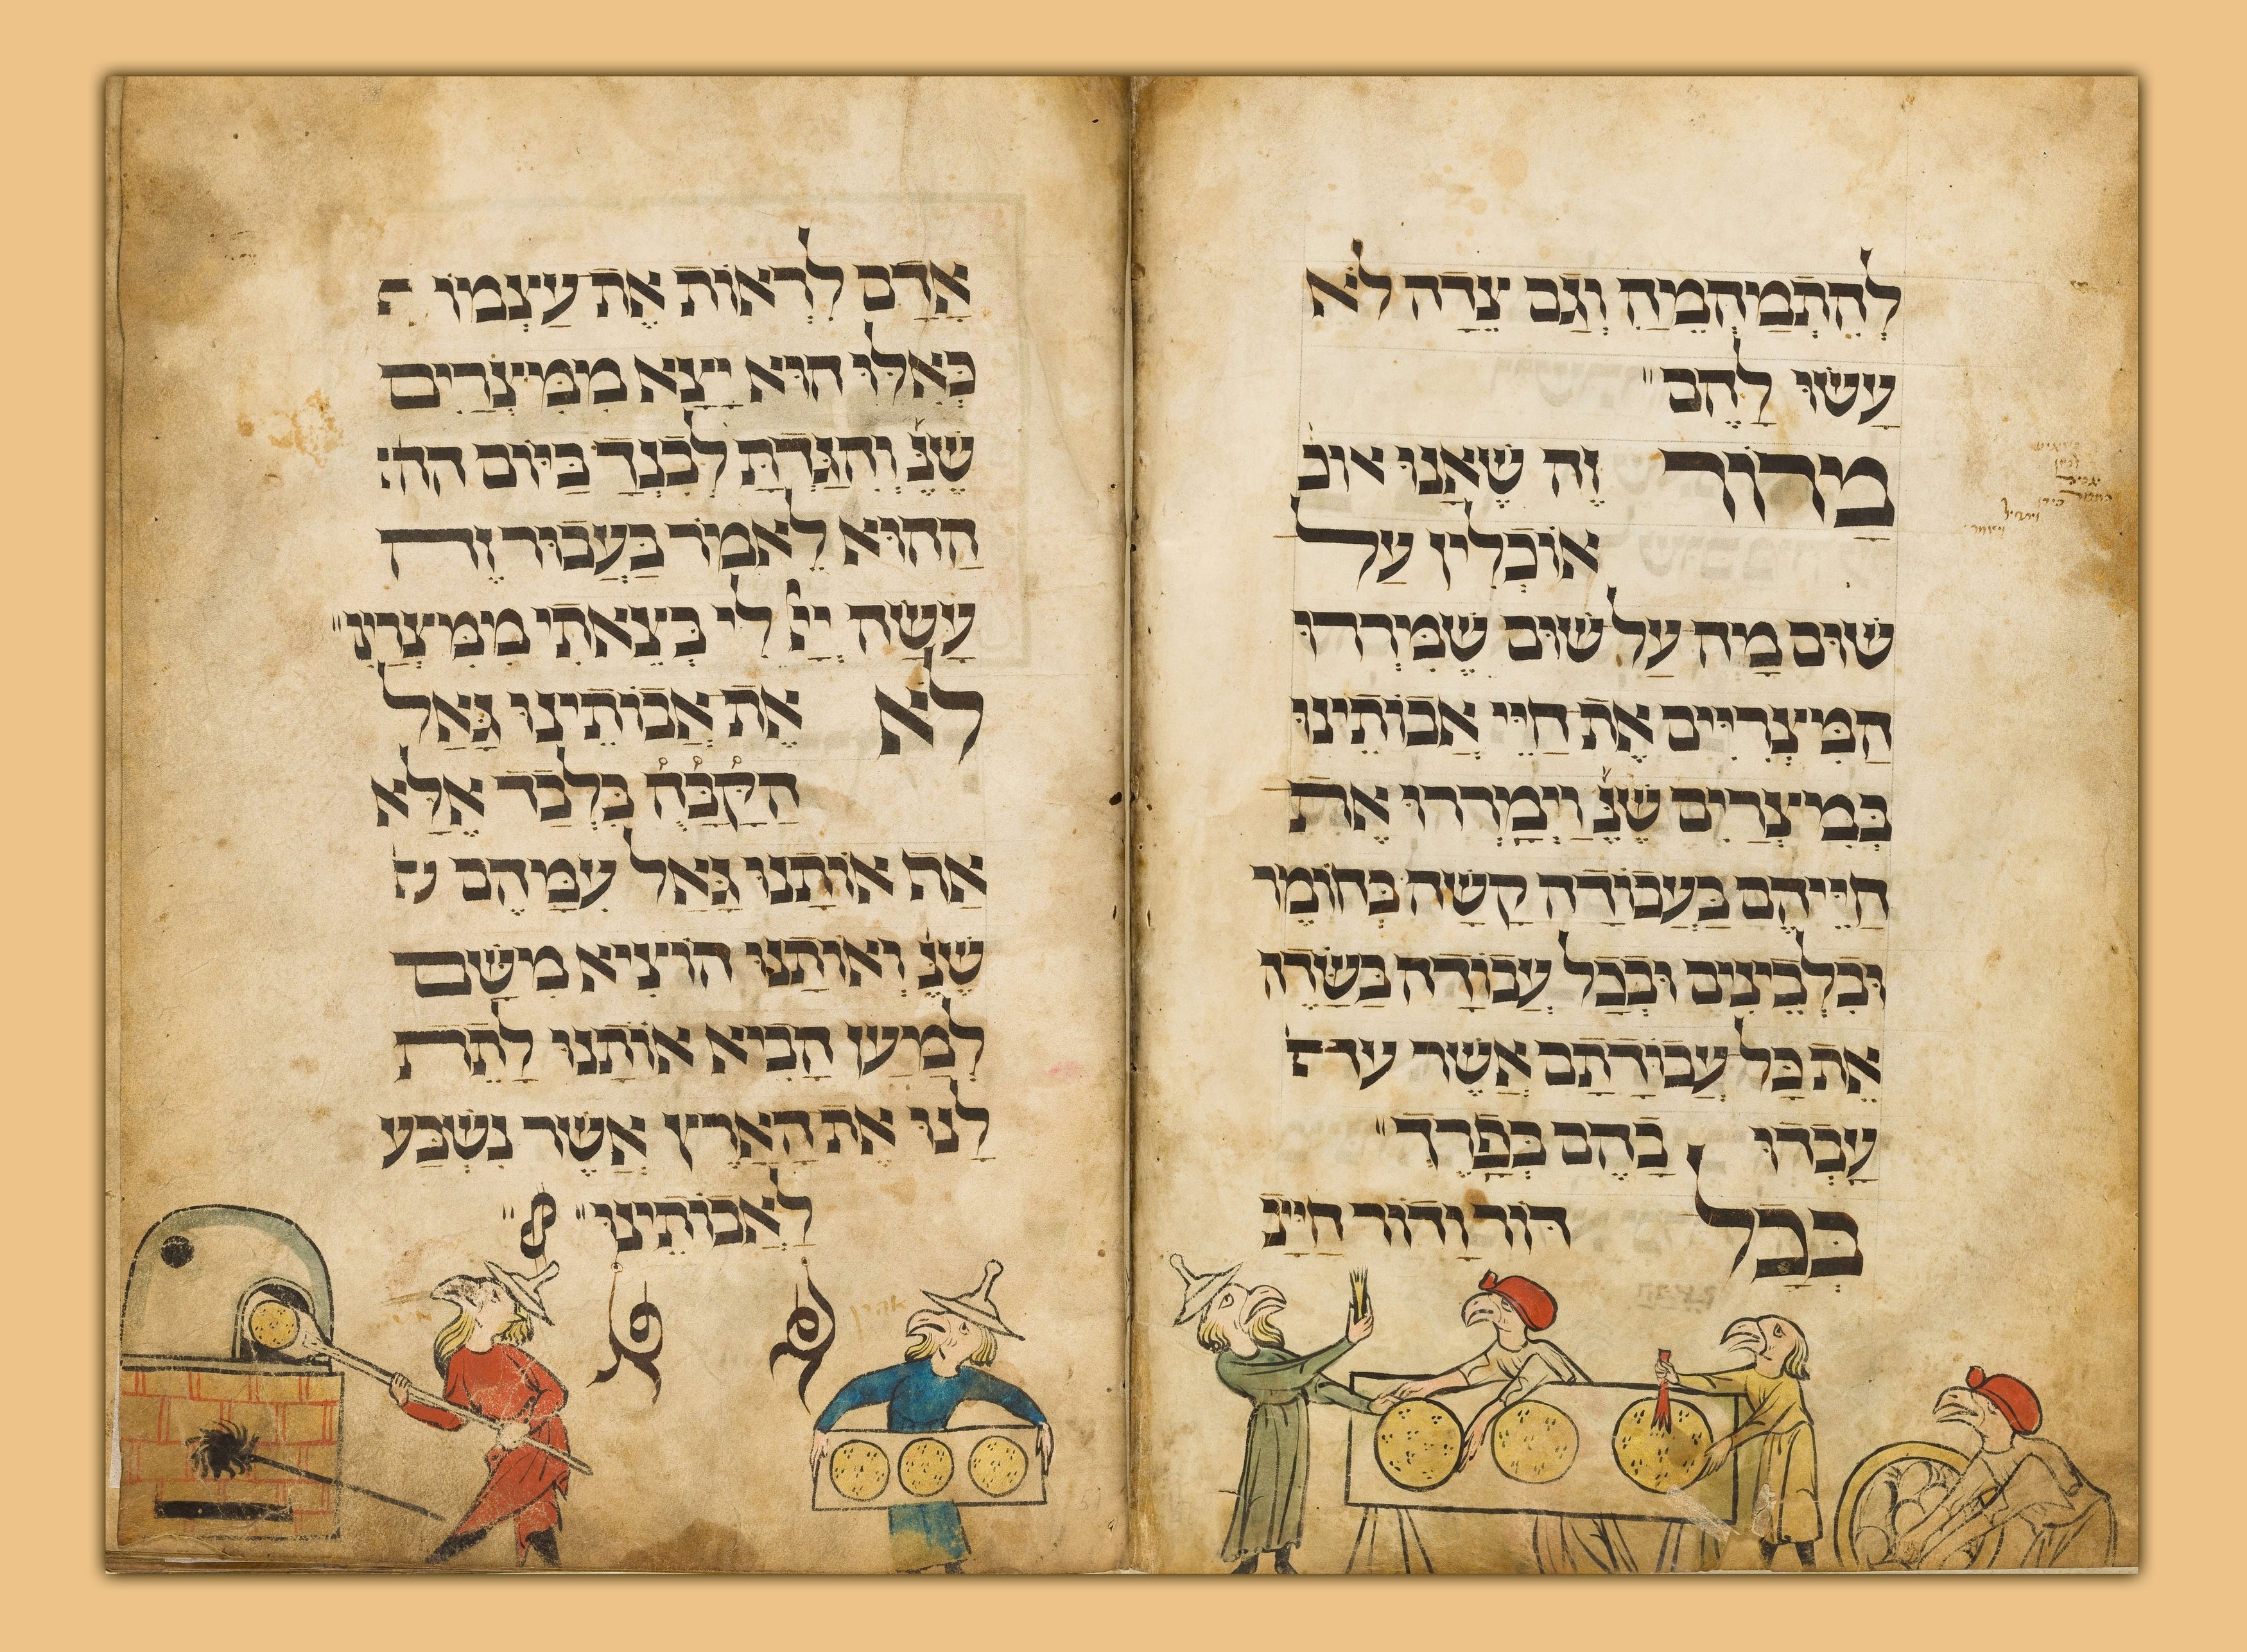 לְהִתְמַהְמֵהַ וְגַם צֵדָה לֹא
עָשׂוּ לָהֶם״
מָרוֹר זֶה שֶׁאָנוּ אוכ
אוֹכְלִין עַל
שׁוּם מָה עַל שׁוּם שֶׁמֵּרְרוּ
הַמִּצְרִיִּים אֶת חַיֵּי אֲבוֹתֵינוּ
בְּמִצְרַיִם שֶׁנֶּ׳ וַיְמָרְרוּ אֶת
חַיֵּיהֶם בַּעֲבוֹדָה קָשָׁה בְּחוֹמֶר
וּבִלְבֵינִים וּבְכָל עֲבוֹדָה בַּשָּׂדֶה
אֵת כָּל עֲבוֹדָתָם אֲשֶׁר
עָבְדוּ בָהֶם בְּפָרֶךְ״
בְּכָל דּוֹר וָדוֹר חַיָּיב
אָדָם לִרְאוֹת אֶת עַצְמוֹ
כְּאִלּוּ הוּא יָצָא מִמִּצְרַיִם
שֶׁנֶּ׳ וְהִגַּדְתָּ לְבִנְךָ בַּיּוֹם הה׳
הַהוּא לֵאמֹר בַּעֲבוּר זֶה
עָשָׂה יְיָ לִי בְּצֵאתִי מִמִּצְרַיִם״
לֹא אֶת אֲבוֹתֵינוּ גָּאַל
הַקָּבָּהְ בִּלְבַד אֶלָּא
אַף אוֹתָנוּ גָּאַל עִמָּהֶם
שֶׁנֶּ׳ וְאוֹתָנוּ הוֹצִיא מִשָּׁם
לְמַעַן הָבִיא אוֹתָנוּ לָתֶת
לָנוּ אֶת הָאָרֶץ אֲשֶׁר נִשְׁבַּע
לַאֲבוֹתֵינוּ״